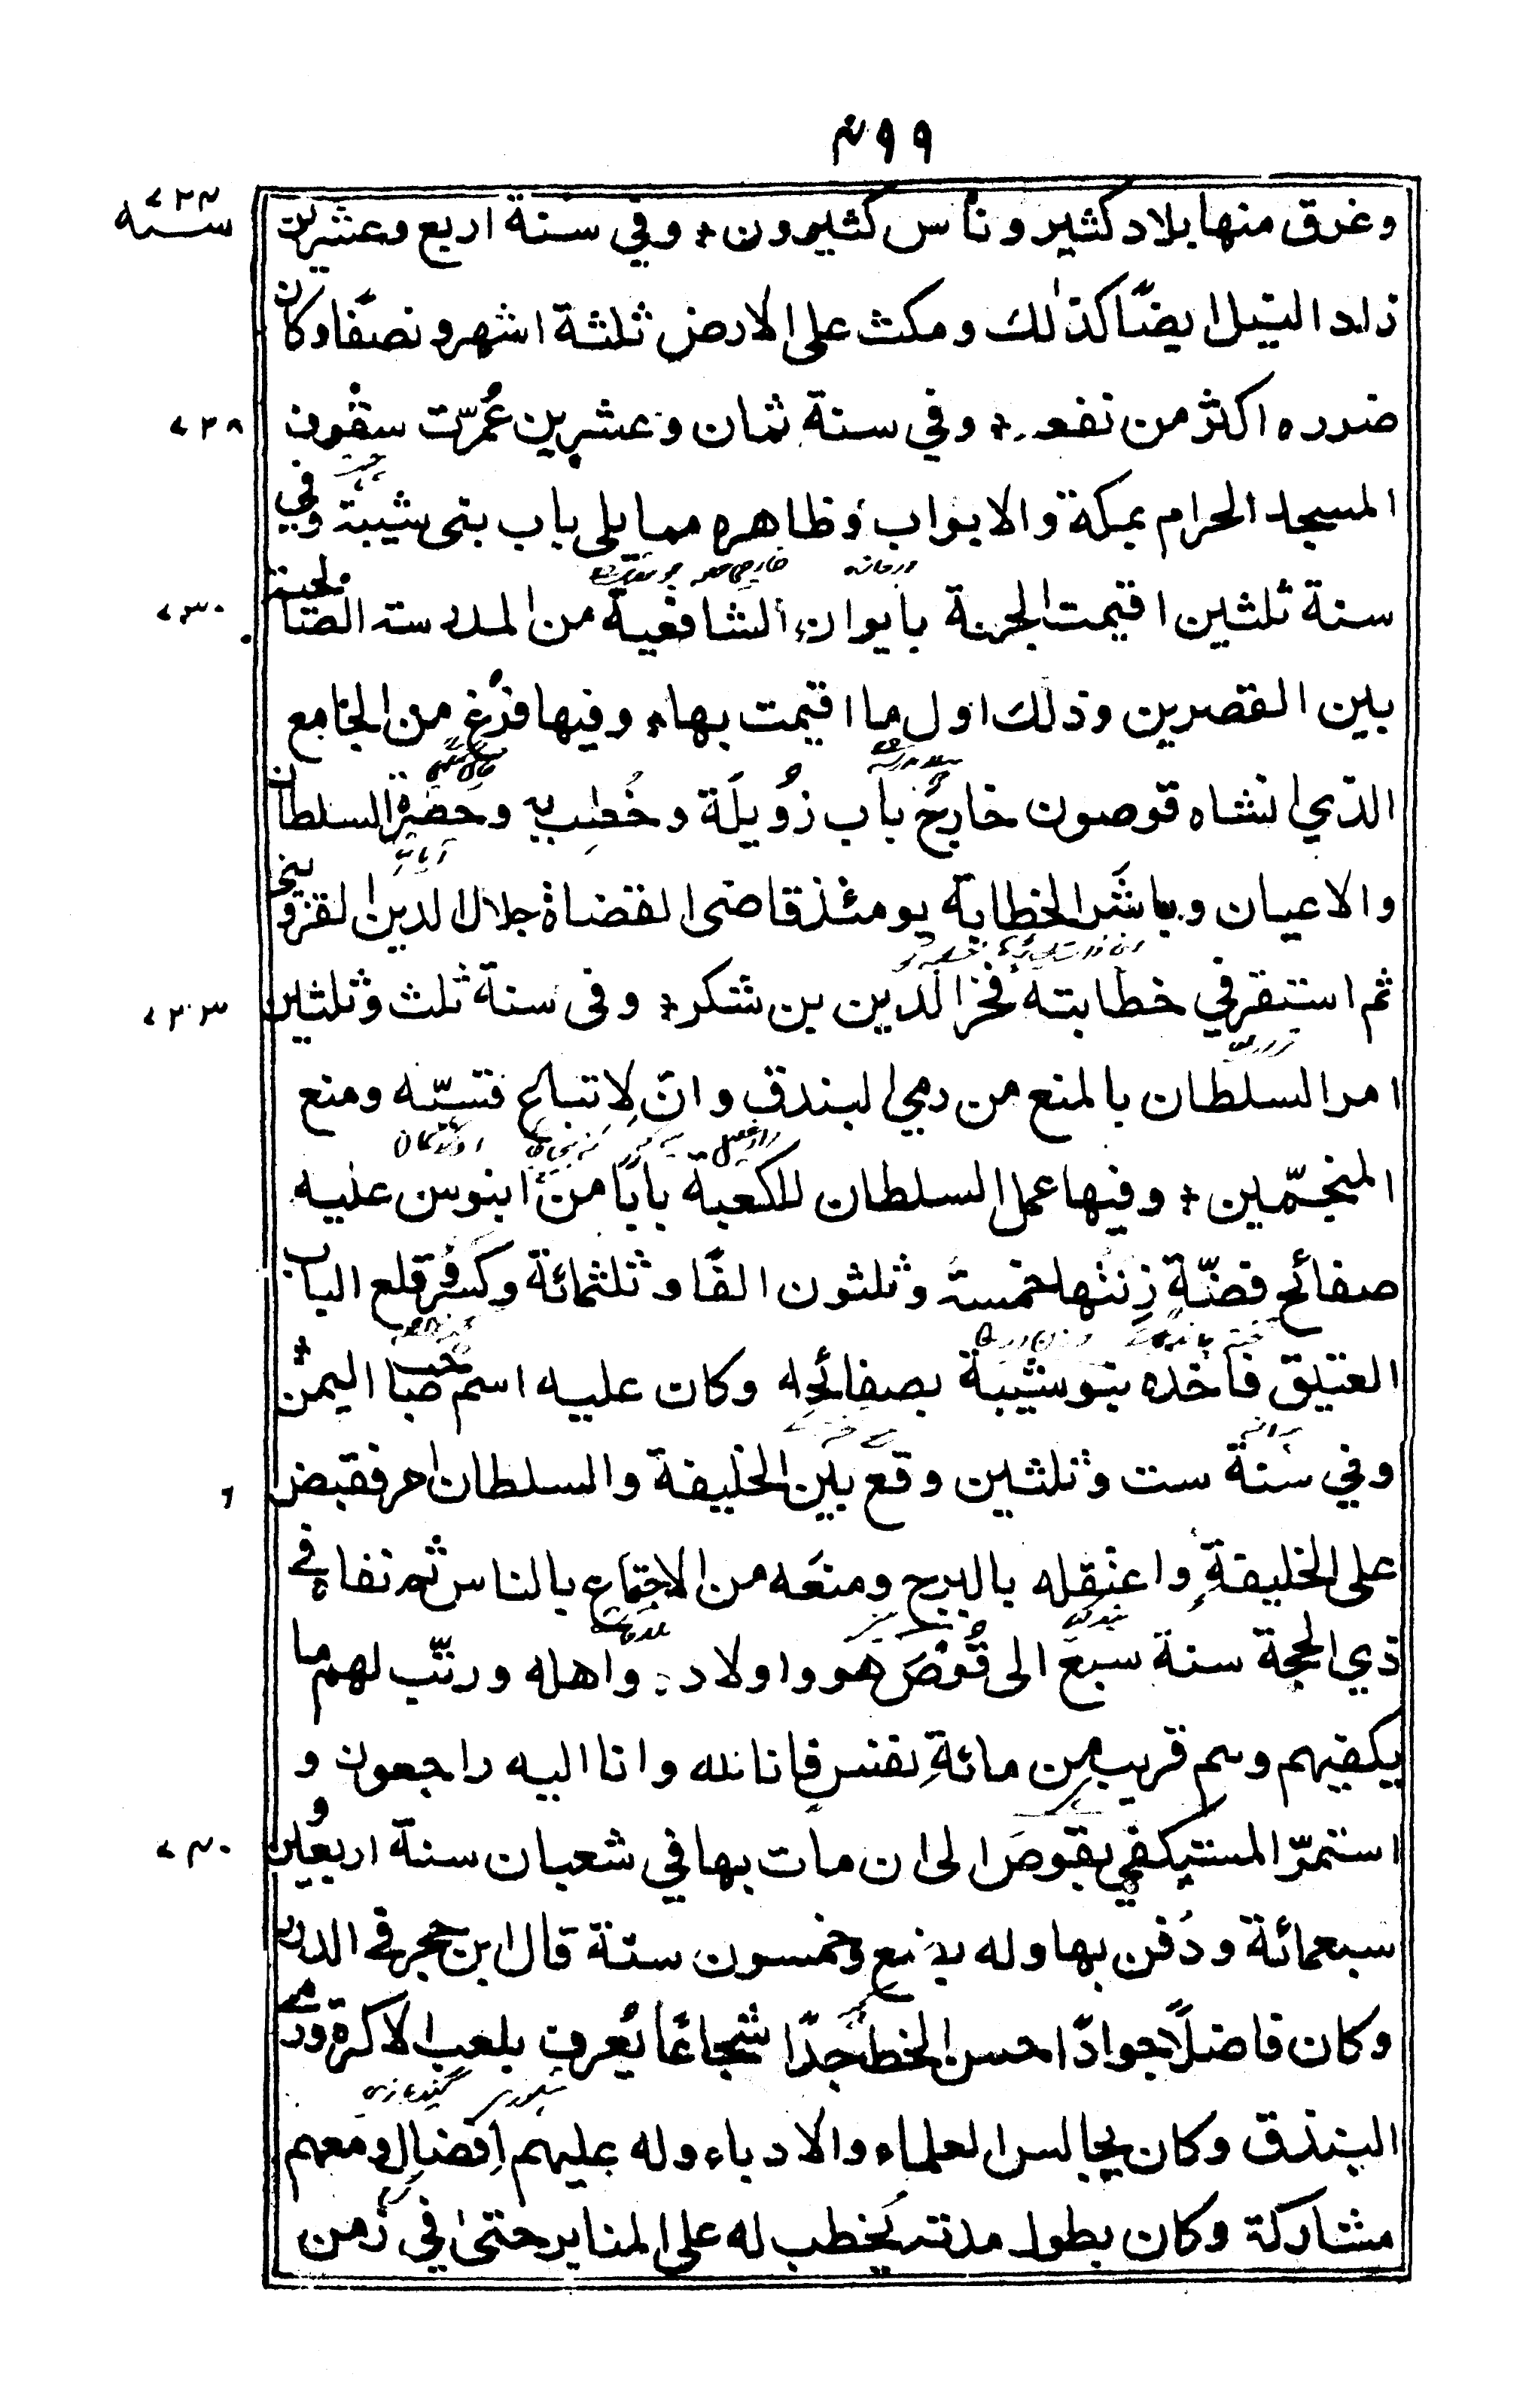 ٤٩٩
وغرق منها بلاد كثير وناس كثيرون + وفي سنة اربع وعشرين
سنه ٧٢٤
زاد النيل ايضًا كذٰلك ومكث على الارض ثلثة اشهر ونصفًا وكان
ضرره اكثر من نفعه + وفي سنة ثمان وعشرين عُمّرت سقوف
٧٢٨
المسجد الحرام بمكة والابواب وظاهره مما يلي باب بنى شيبة وفي
سنة ثلثين اقيمت الجمعة بايوان الشافعية من المدرسة الصالحية
٧٣٠
بين القصرين وذلك اول ما اقيمت بها + وفيها فرُغ من الجامع
الذي انشاه قوصون خارج باب زُوَيلَة وخُطِب به وحضرة السلطان
والاعيان وباشَر الخطابة يومئذ قاضى القضاة جلال الدين القزويني
ثم استقر في خطابته فخر الدين بن شكر + وفى سنة ثلث وثلثين
٧٣٣
امر السلطان بالمنع من رمي البندق وانّ لا تباع قسيّه ومنع
المنجّمين + وفيها عمل السلطان للكعبة بابًا من ابنوس عليه
صفائح فضّة زِنتُها خمسة وثلثون الفًا وثلثمائة وكسُرٌ قلع الباب
العتيق فاخذه بنو شيبة بصفائحه وكان عليه اسم صاحب اليمن +
وفي سنة ست وثلثين وقع بين الخليفة والسلطان امر فقبض
٦
على الخليفة واعتقله بالبرج ومنعَه من الاجتماع بالناس ثم نفاه في
ذي الحجة سنة سبع الى قُوْصَ هو واولاده واهله ورتّب لهم ما
يكفيهم وهم قريب من مائةِ نفس فانا لله وانا اليه راجعون و
استمرّ المستكفي بقوصَ الى ان مات بها في شعبان سنة اربعين و
٧٤٠
سبعمائة ودُفن بها وله بضع وخمسون سنة قال ابن حجر في الدرر
وكان فاضلًا جوادًا حسن الخط جدًّا شجاعًا يُعرف بلعب الاكرة ورمي
البندق وكان يجالس العلماء والادباء وله عليهم اِفضال ومعهم
مشاركة وكان بطول مدته يُخطب له على المنابر حتىٰ في زمن